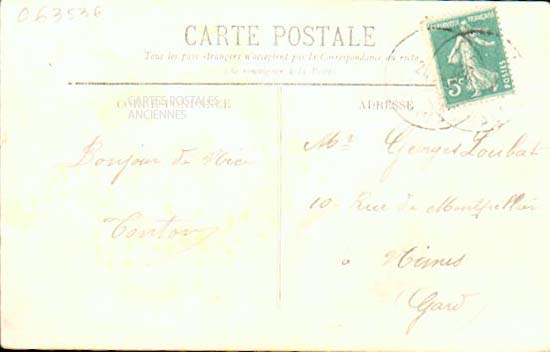 063536
CARTE POSTALE
Tous les pays étrangers n'acceptent pas la Correspondance au recto
REPUBLIQUE FRANÇAISE
5c
POSTES
CORRESPONDANCE
CARTES POSTALES
ANCIENNES
ADRESSE
Bonjour de Nice
Tonton
Mr Georges Loubat
10 Rue de Montpellier
a Nimes
(Gard)